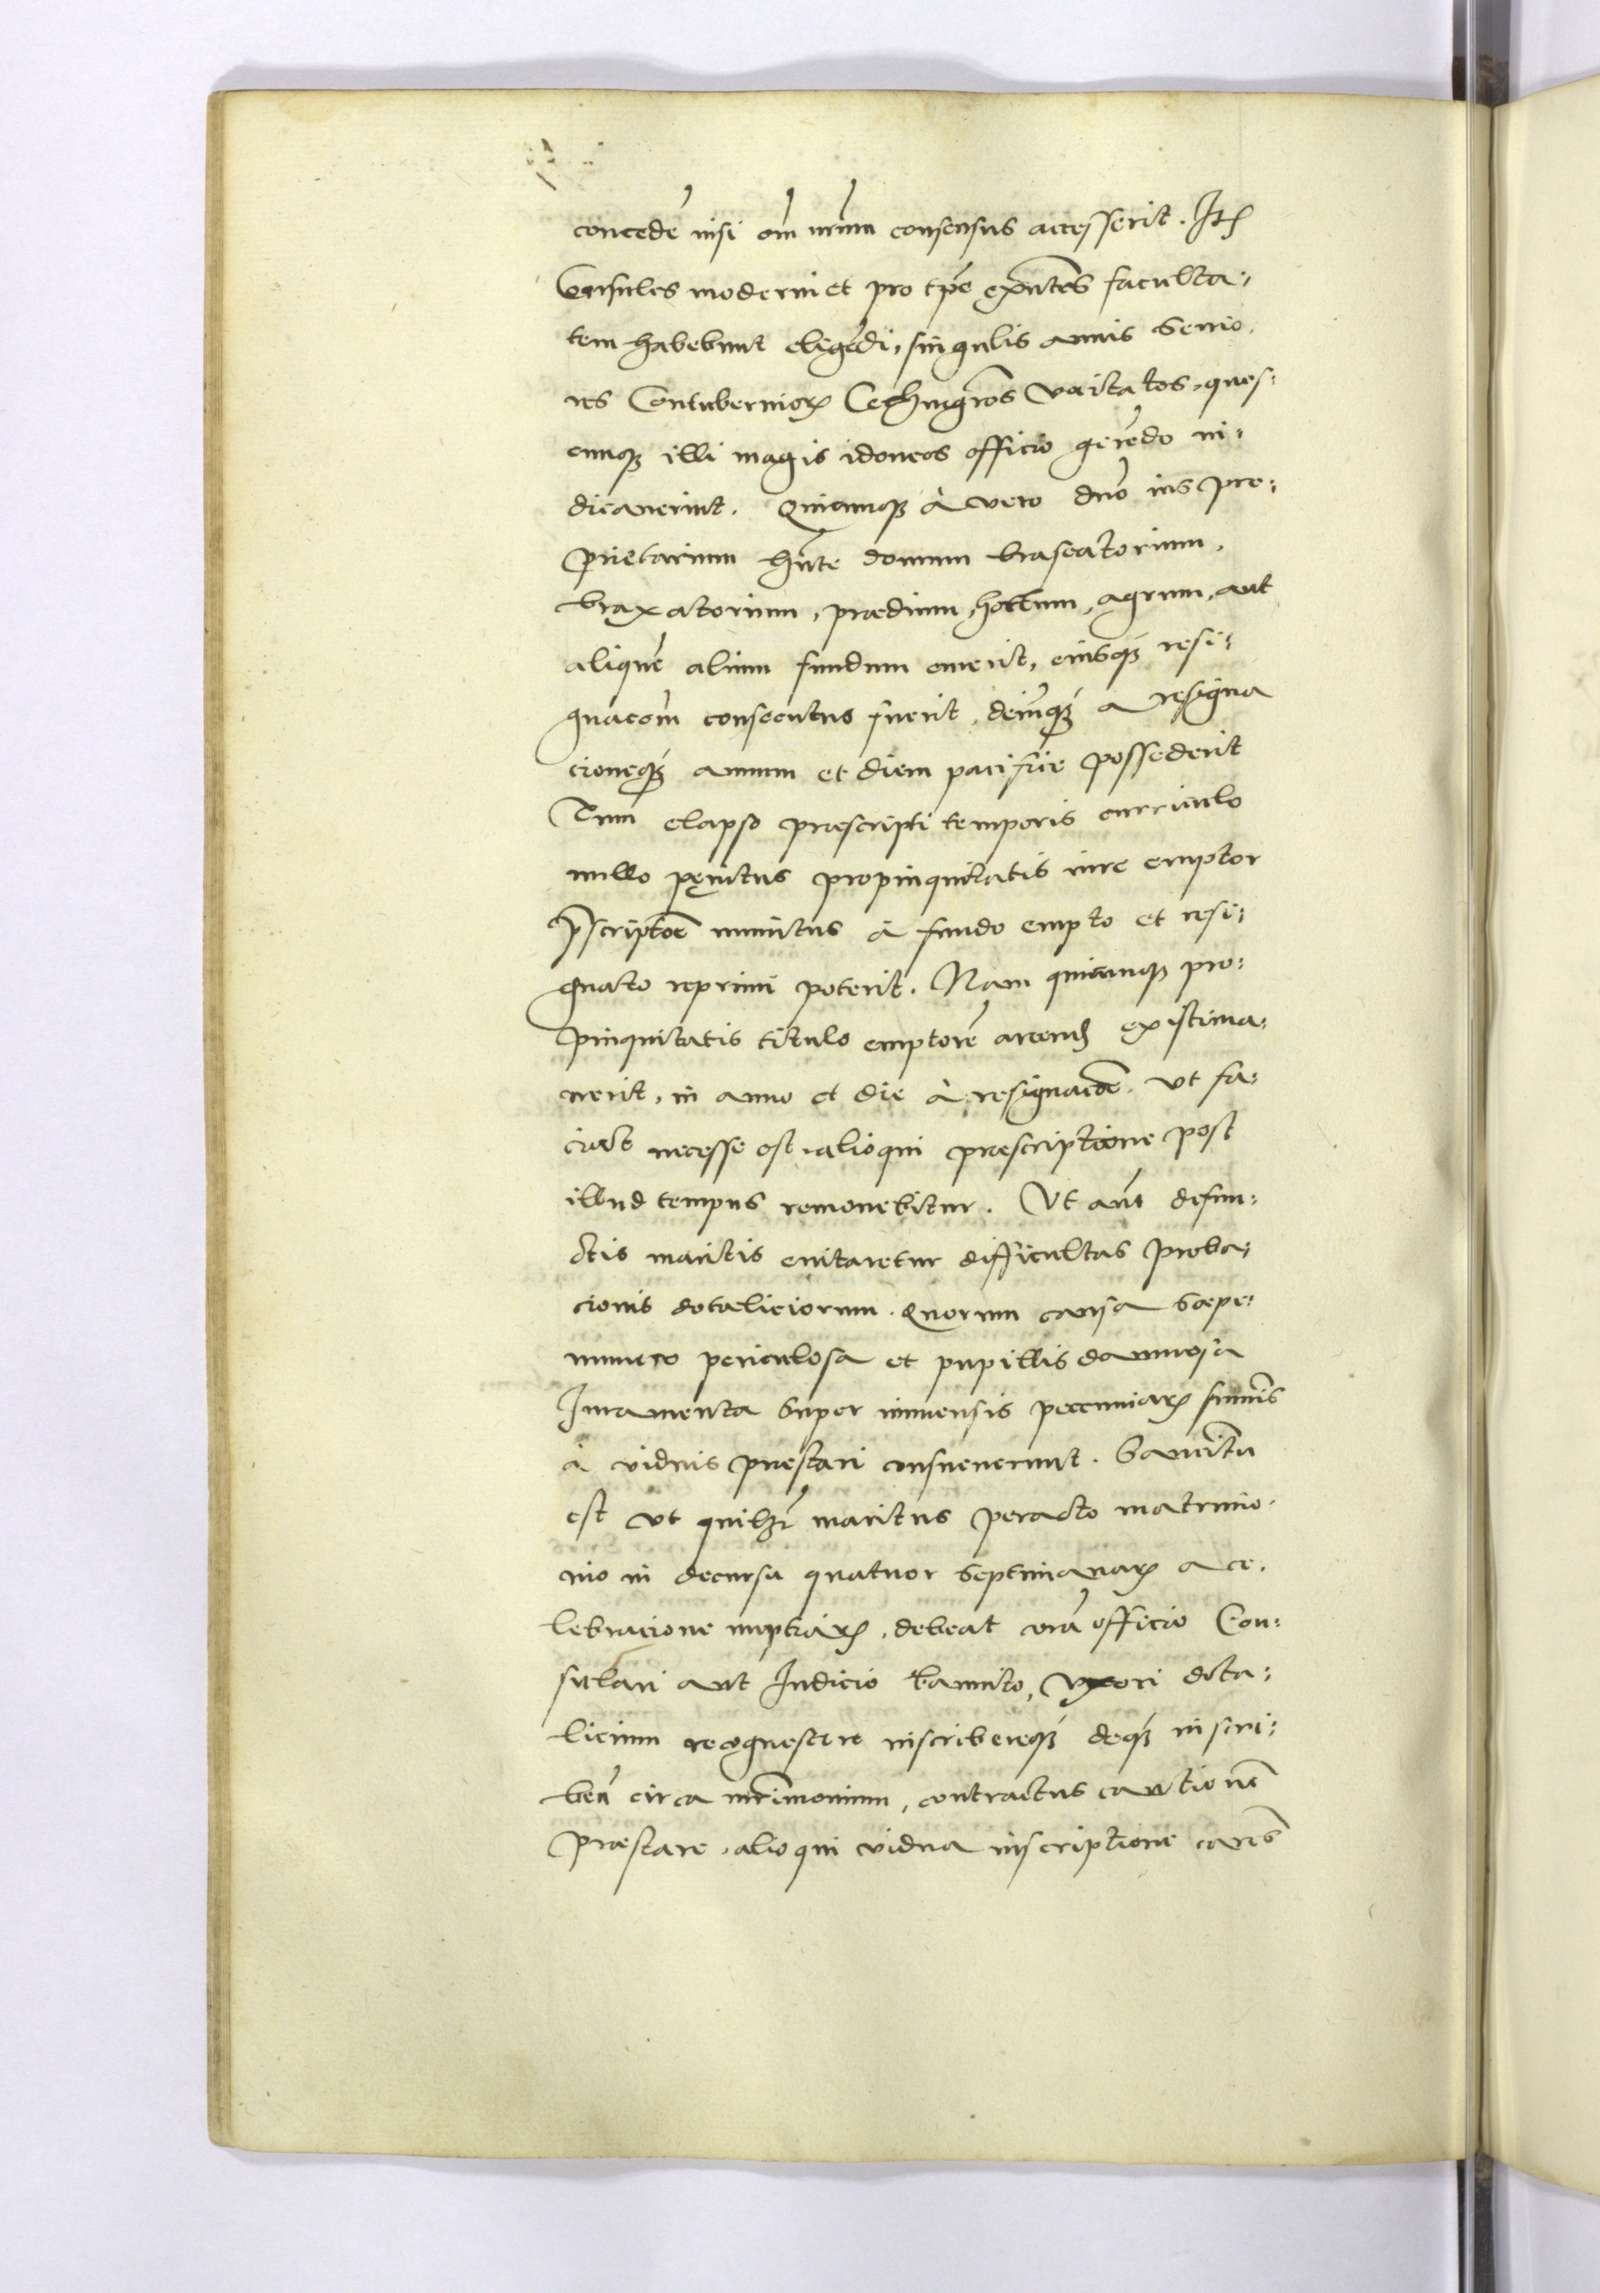 concedē nisi om̄ nr̄m consensus accesserit. Itē
Consules moderni et pro tp̄e exn̄tes faculta:
tem habebunt eligēdi, singulis annis Senio,
res Contubernioꝝ Cechmgr̄os vocitatos, ques:
cunqꝫ illi magis idoneos officio gerēdo iu:
dicauerint. Quicunqꝫ à vero dn̄o ius pro:
prietarium hn̄te domum braseatorium,
braxatorium, prædium, hortum, agrum, aut
aliquē alium fundum emerit, eiusqꝫ resi:
gnacōm̄ consecutus fuerit, deinqꝫ a resigna
cioneqꝫ annum et diem pacifice possederit
Tum elapso præscripti temporis curriculo
nullo pęnitus propinquitatis iure emptor
p̄scriptōe munitus à fundo empto et resi:
gnato reprimi poterit. Nam quicunqꝫ pro:
pinquitatis titulo emptorē arcend existima,
uerit, in anno et die à resignacōe, vt fa:
ciat necesse est, alioqui præscriptione post
illud tempus remouebitur. Vt aūt defun:
ctis maritis euitaretur difficultas proba:
cionis dotaliciorum. Quorum causa sæpe:
numero periculosa et pupillis damnosa
Iuramenta super immensis pecuniaꝝ sum̄is
à viduis præstari consueuerunt. Sancitū
est vt quilꝫt maritus peracto matrimo,
nio in decursu quatuor septimanaꝝ a ce,
lebracione nuptiaꝝ, debeat corā officio Con:
sulari aut Iudicio bannito, vxori dota:
licium recognoscere inscribereqꝫ deqꝫ inscri:
ben̄ circa mr̄imonium, contractus cautionē
præstare, alioqui vidua inscriptione carēs